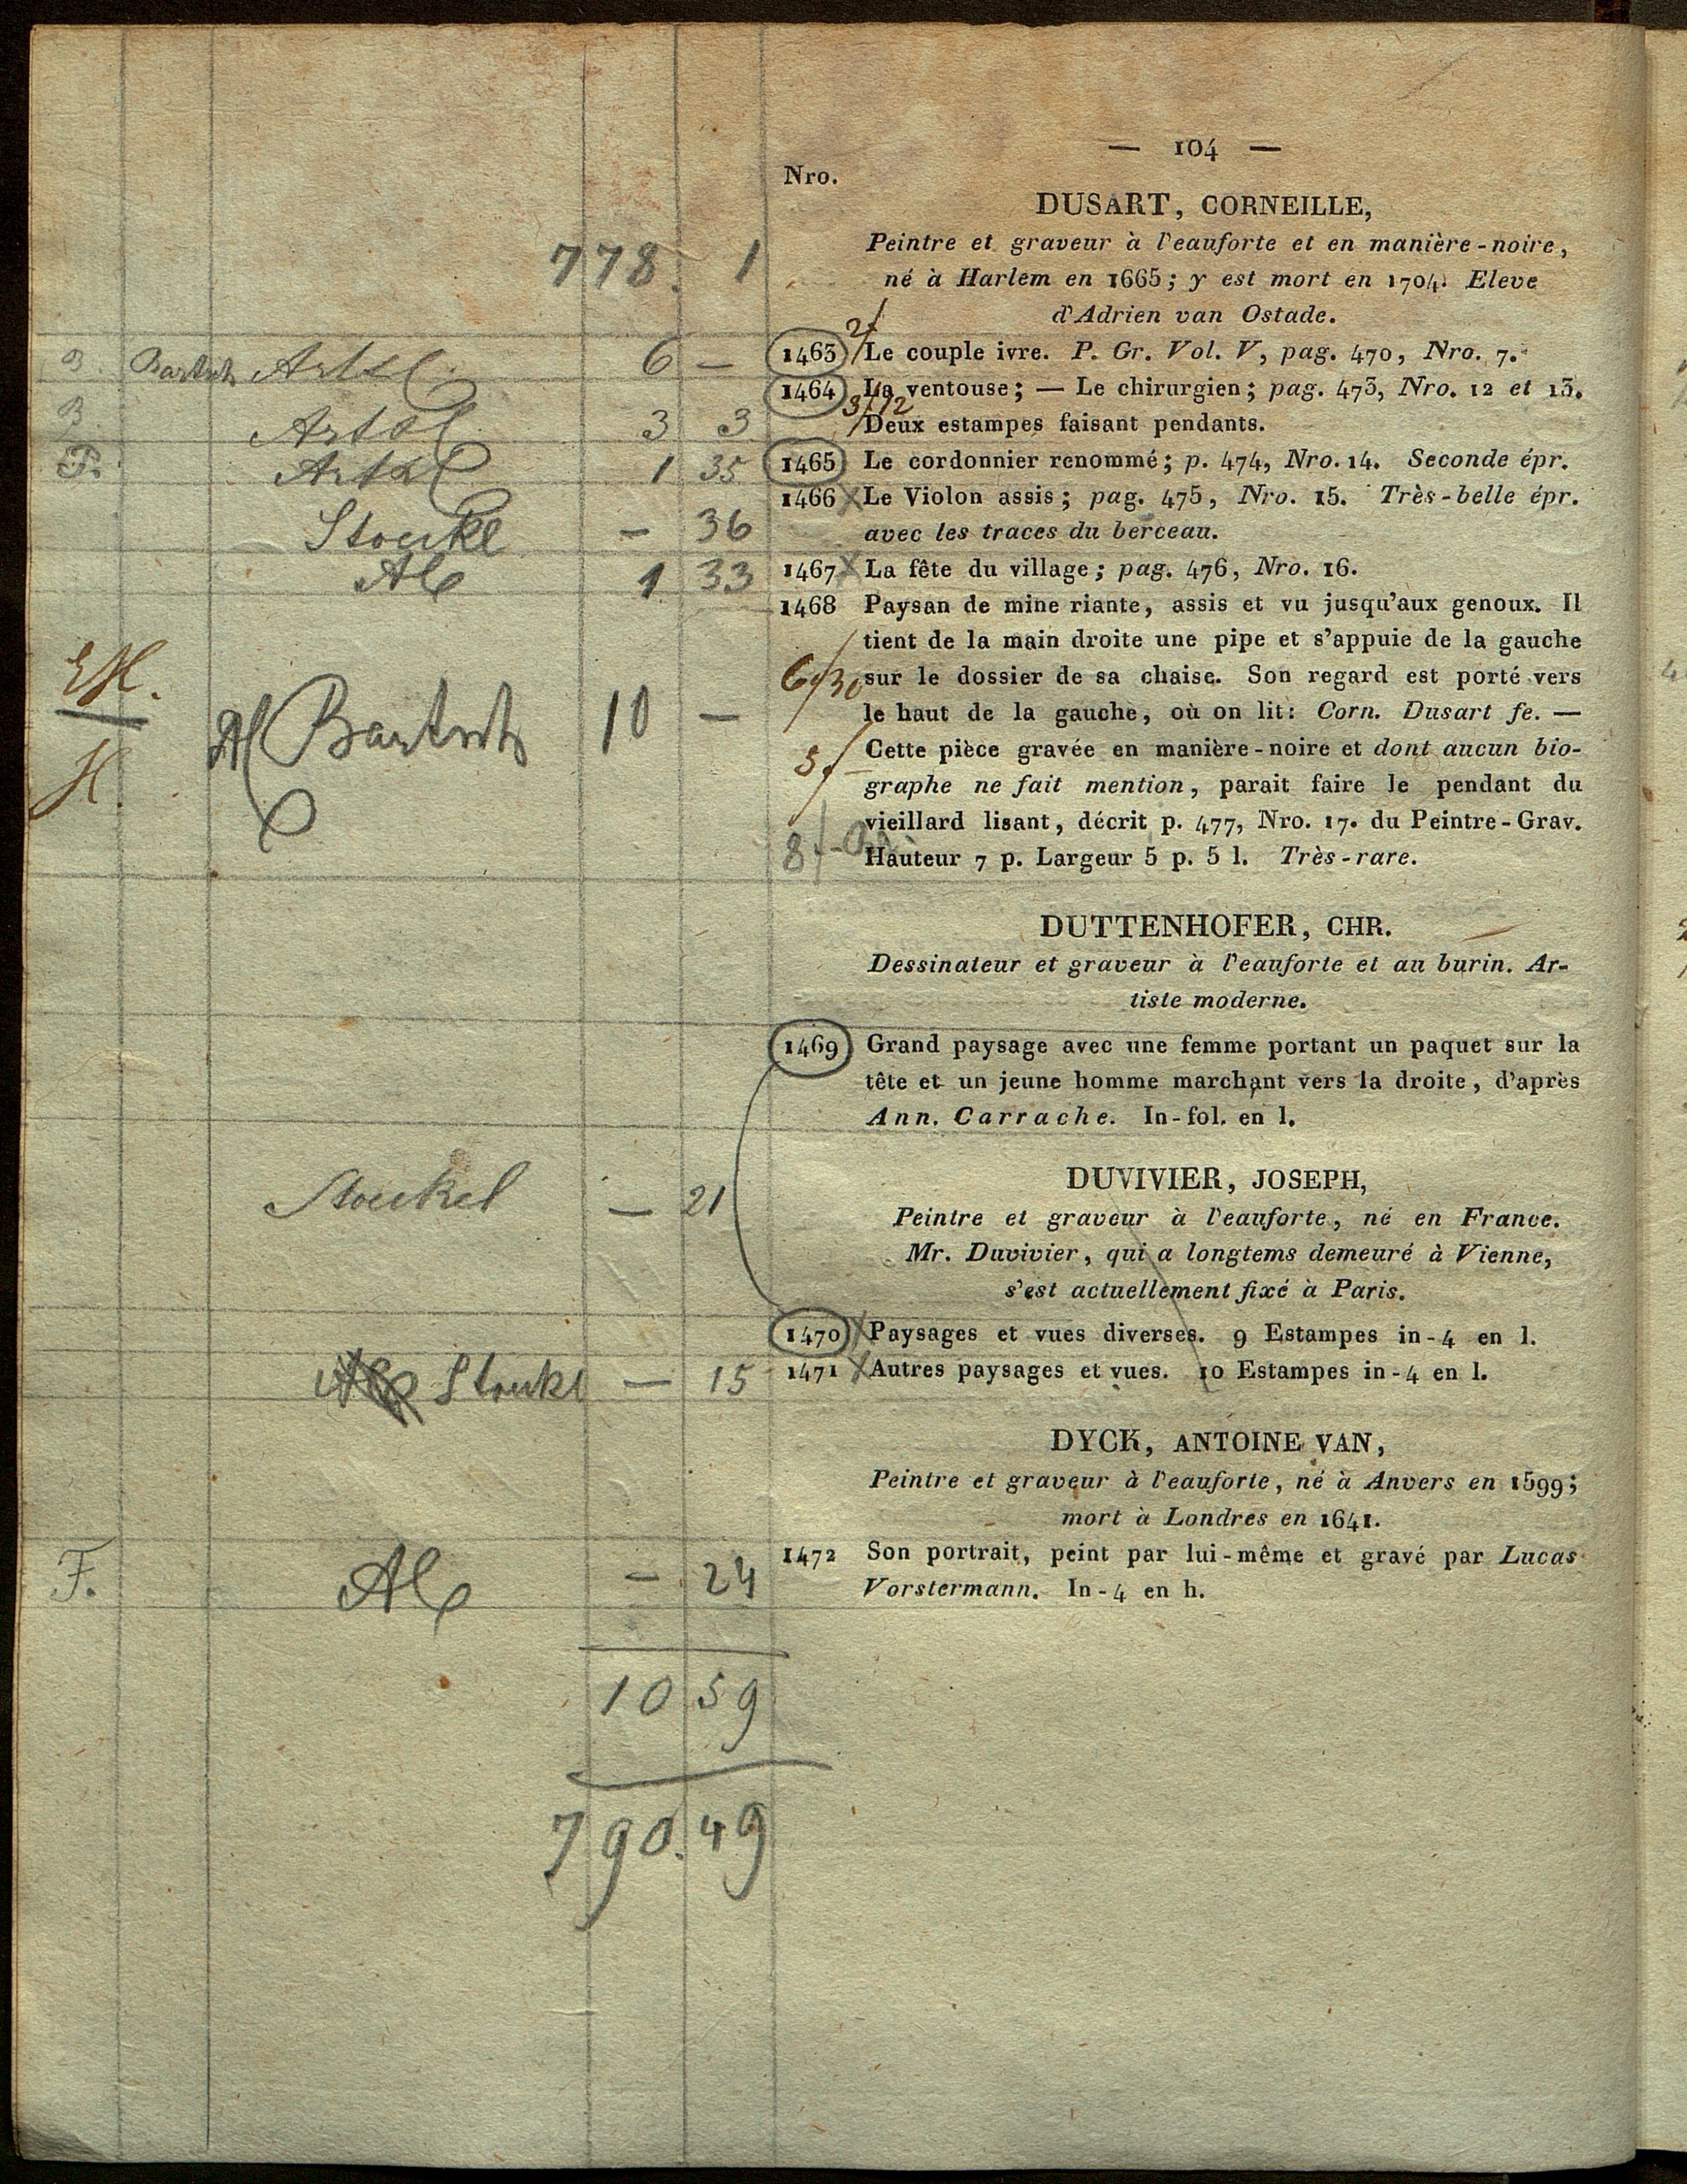 — 104 —
Nro.
DUSART, CORNEILLE,
Peintre et graveur à l'eauforte et en manière-noire,
778. 1
né à Harlem en 1665; y est mort en 1704. Eleve
d'Adrien van Ostade.
B Bartsch Artar 6 — 1463 Le couple ivre. P. Gr. Vol. V, pag. 470, Nro. 7.
1464 La ventouse; — Le chirurgien; pag. 473, Nro. 12 et 13.
B Artar 3 3 Deux estampes faisant pendants.
F. Artar 1 35 1465 Le cordonnier renommé; p. 474, Nro. 14. Seconde épr.
1466 Le Violon assis; pag. 475, Nro. 15. Très-belle épr.
Stoukl — 36 avec les traces du berceau.
Al 1 33 1467 La fête du village; pag. 476, Nro. 16.
1468 Paysan de mine riante, assis et vu jusqu'aux genoux. Il
tient de la main droite une pipe et s'appuie de la gauche
6/30 sur le dossier de sa chaise. Son regard est porté vers
Bartsch 10 — le haut de la gauche, où on lit: Corn. Dusart fe. —
Cette pièce gravée en manière-noire et dont aucun bio-
H. graphe ne fait mention, parait faire le pendant du
vieillard lisant, décrit p. 477, Nro. 17. du Peintre-Grav.
Hauteur 7 p. Largeur 5 p. 5 l. Très-rare.
DUTTENHOFER, CHR.
Dessinateur et graveur à l'eauforte et au burin. Ar-
tiste moderne.
1469 Grand paysage avec une femme portant un paquet sur la
tête et un jeune homme marchant vers la droite, d'après
Ann. Carrache. In-fol. en l.
DUVIVIER, JOSEPH,
Stoukel — 21
Peintre et graveur à l'eauforte, né en France.
Mr. Duvivier, qui a longtems demeuré à Vienne,
s'est actuellement fixé à Paris.
1470 Paysages et vues diverses. 9 Estampes in-4 en l.
Stoukl — 15 1471 Autres paysages et vues. 10 Estampes in-4 en l.
DYCK, ANTOINE VAN,
Peintre et graveur à l'eauforte, né à Anvers en 1599;
mort à Londres en 1641.
F. Al — 24 1472 Son portrait, peint par lui-même et gravé par Lucas
Vorstermann. In-4 en h.
10 59
790.49